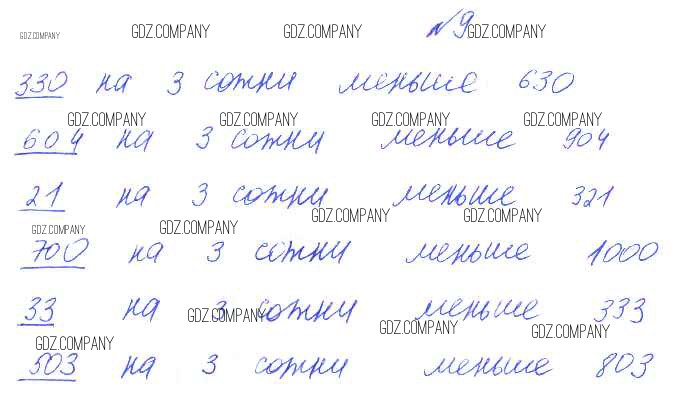 GDZ.COMPANY GDZ.COMPANY GDZ.COMPANY №9 GDZ.COMPANY
330 на 3 сотни меньше 630
GDZ.COMPANY GDZ.COMPANY GDZ.COMPANY GDZ.COMPANY
604 на 3 сотни меньше 904
21 на 3 сотни меньше 321
GDZ.COMPANY GDZ.COMPANY
GDZ.COMPANY GDZ.COMPANY
700 на 3 сотни меньше 1000
33 на 3 сотни меньше 333
GDZ.COMPANY GDZ.COMPANY GDZ.COMPANY
GDZ.COMPANY
503 на 3 сотни меньше 803